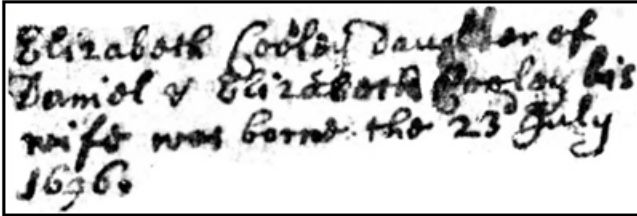 Elizabeth Cooley daughter of
Daniel & Elizabeth Cooley his
wife was borne the 23d July
1696.